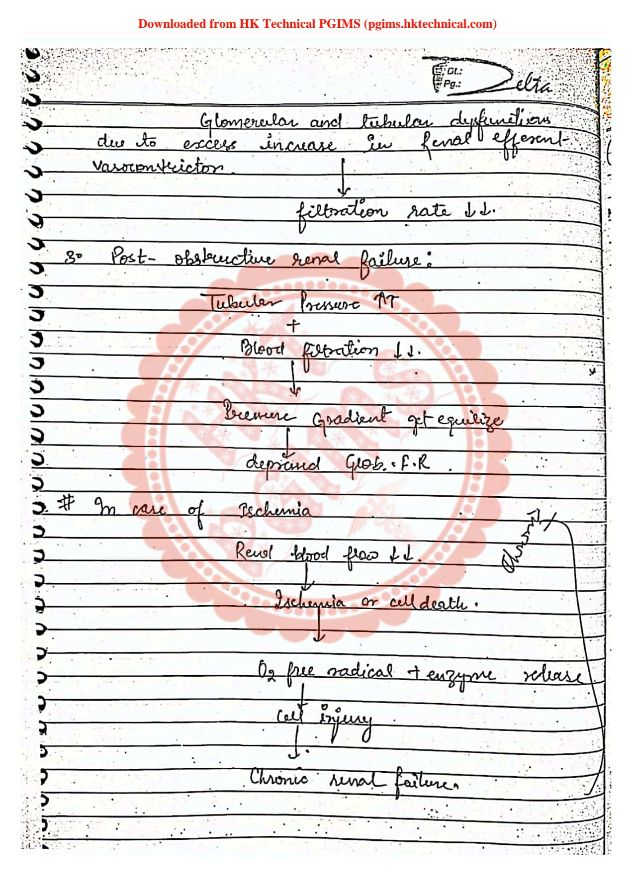 Downloaded from HK Technical PGIMS (pgims.hktechnical.com)
Dt.:
Pg.:
Delta
Glomerular and tubular dysfunctions
due to excess increase in Renal efferent
vasoconstrictor.
↓
filtration rate ↓↓.
3° Post- obstructive renal failure:
Tubular Pressure ↑↑
+
Blood filtration ↓↓.
↓
Pressure Gradient get equilize
↓
depressed Glob. F.R.
# In case of Ischemia
Renal blood flow ↓↓.
↓
Ischemia or cell death.
↓
O2 free radical + enzyme release
↓
Cell injury
↓
Chronic renal failure.